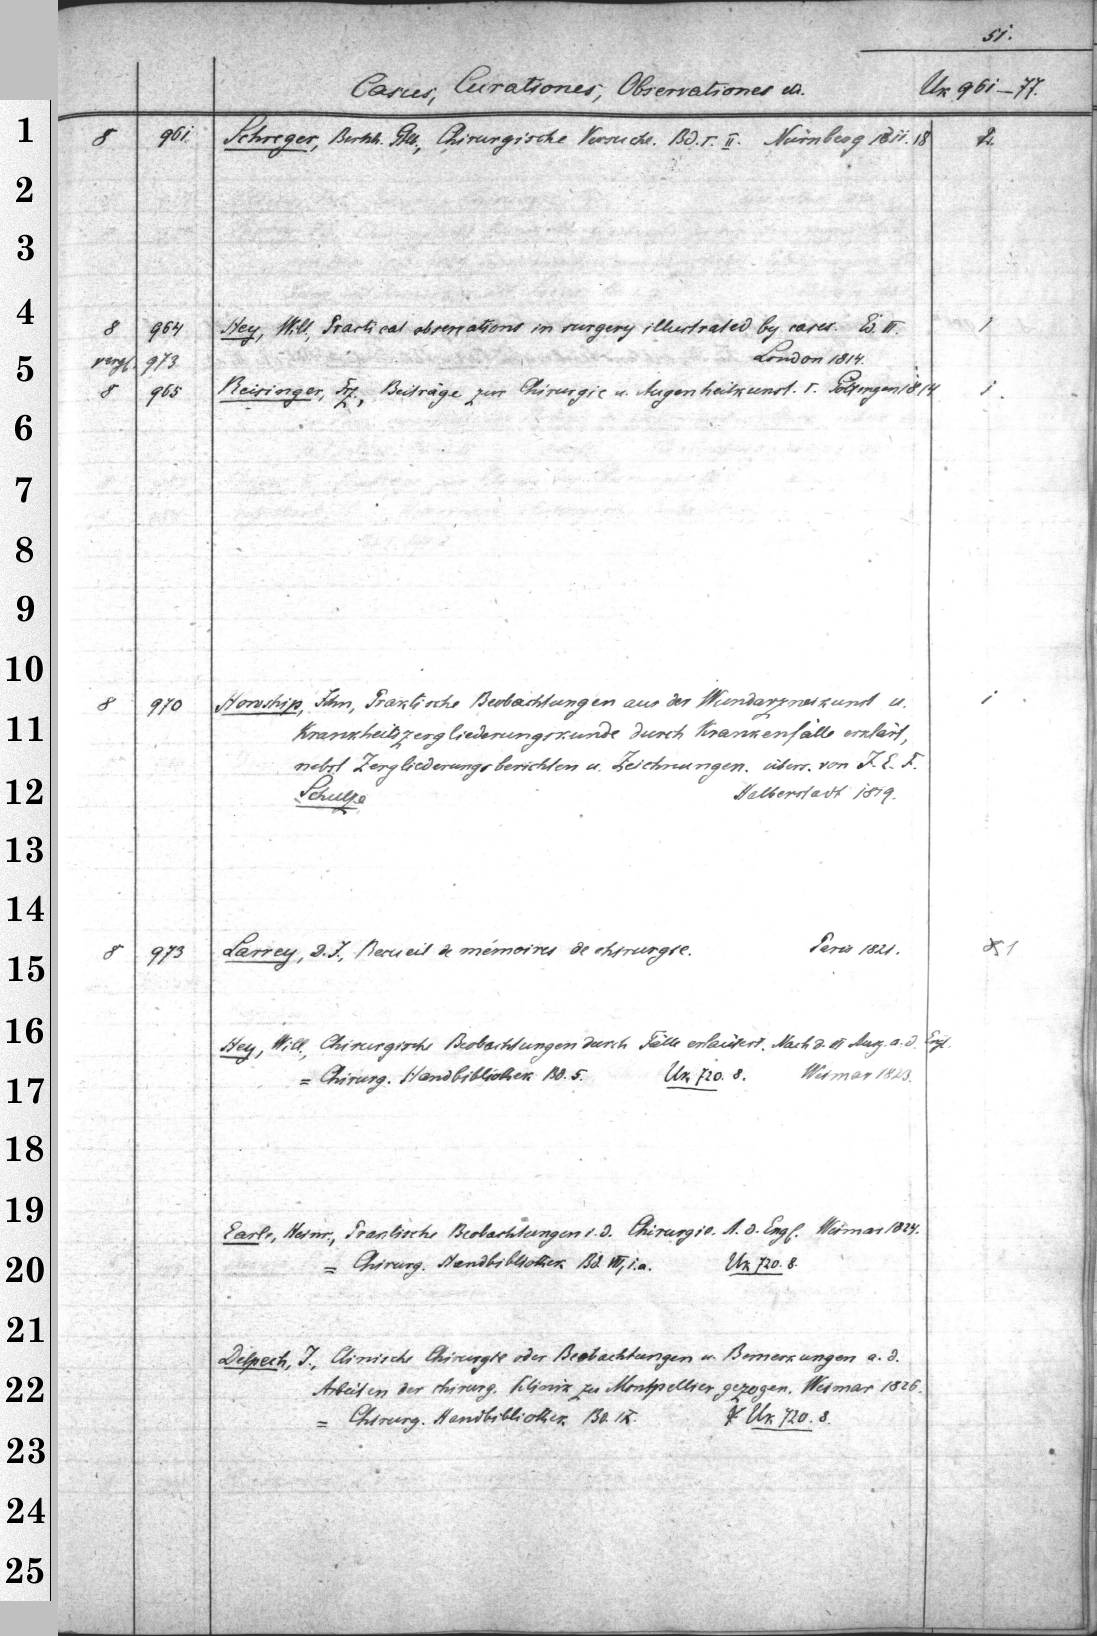 51.
Casus, Curationes, Observationes etc. Uk 961–77.
1 8 961 Schreger, Bernh. Glb., Chirurgische Versuche. Bd. I. II. Nürnberg 1811.18 2.
2
3
4 8 964 Hey, Will., Practical observations in surgery illustrated by cases. Ed. III. 1
5 vergl. 973 London 1814.
8 965 Reisinger, Frz., Beiträge zur Chirurgie u. Augenheilkunst. I. Göttingen 1814 1.
6
7
8
9
10
8 970 Howship, John, Praktische Beobachtungen aus der Wundarzneikunst u. 1
11 Krankheitszergliederungskunde durch Krankenfälle erklärt,
nebst Zergliederungsberichten u. Zeichnungen. übers. von J. E. F.
12 Schulze Halberstadt 1819.
13
14
15 8 973 Larrey, D. J., Recueil de mémoires de chirurgie. Paris 1821. 1
16 Hey, Will., Chirurgische Beobachtungen durch Fälle erläutert. Nach d. III Ausg. a. d. Engl.
17 = Chirurg. Handbibliothek Bd. 5. Uk 720. 8. Weimar 1823.
18
19 Earle, Heinr., Praktische Beobachtungen i. d. Chirurgie. A. d. Engl. Weimar 1824.
20 = Chirurg. Handbibliothek Bd. VII, 1.a. Uk 720. 8.
21 Delpech, J., Clinische Chirurgie oder Beobachtungen u. Bemerkungen a. d.
22 Arbeiten der chirurg. Klinik zu Montpellier gezogen. Weimar 1826.
= Chirurg. Handbibliothek Bd. IX. Uk 720. 8.
23
24
25